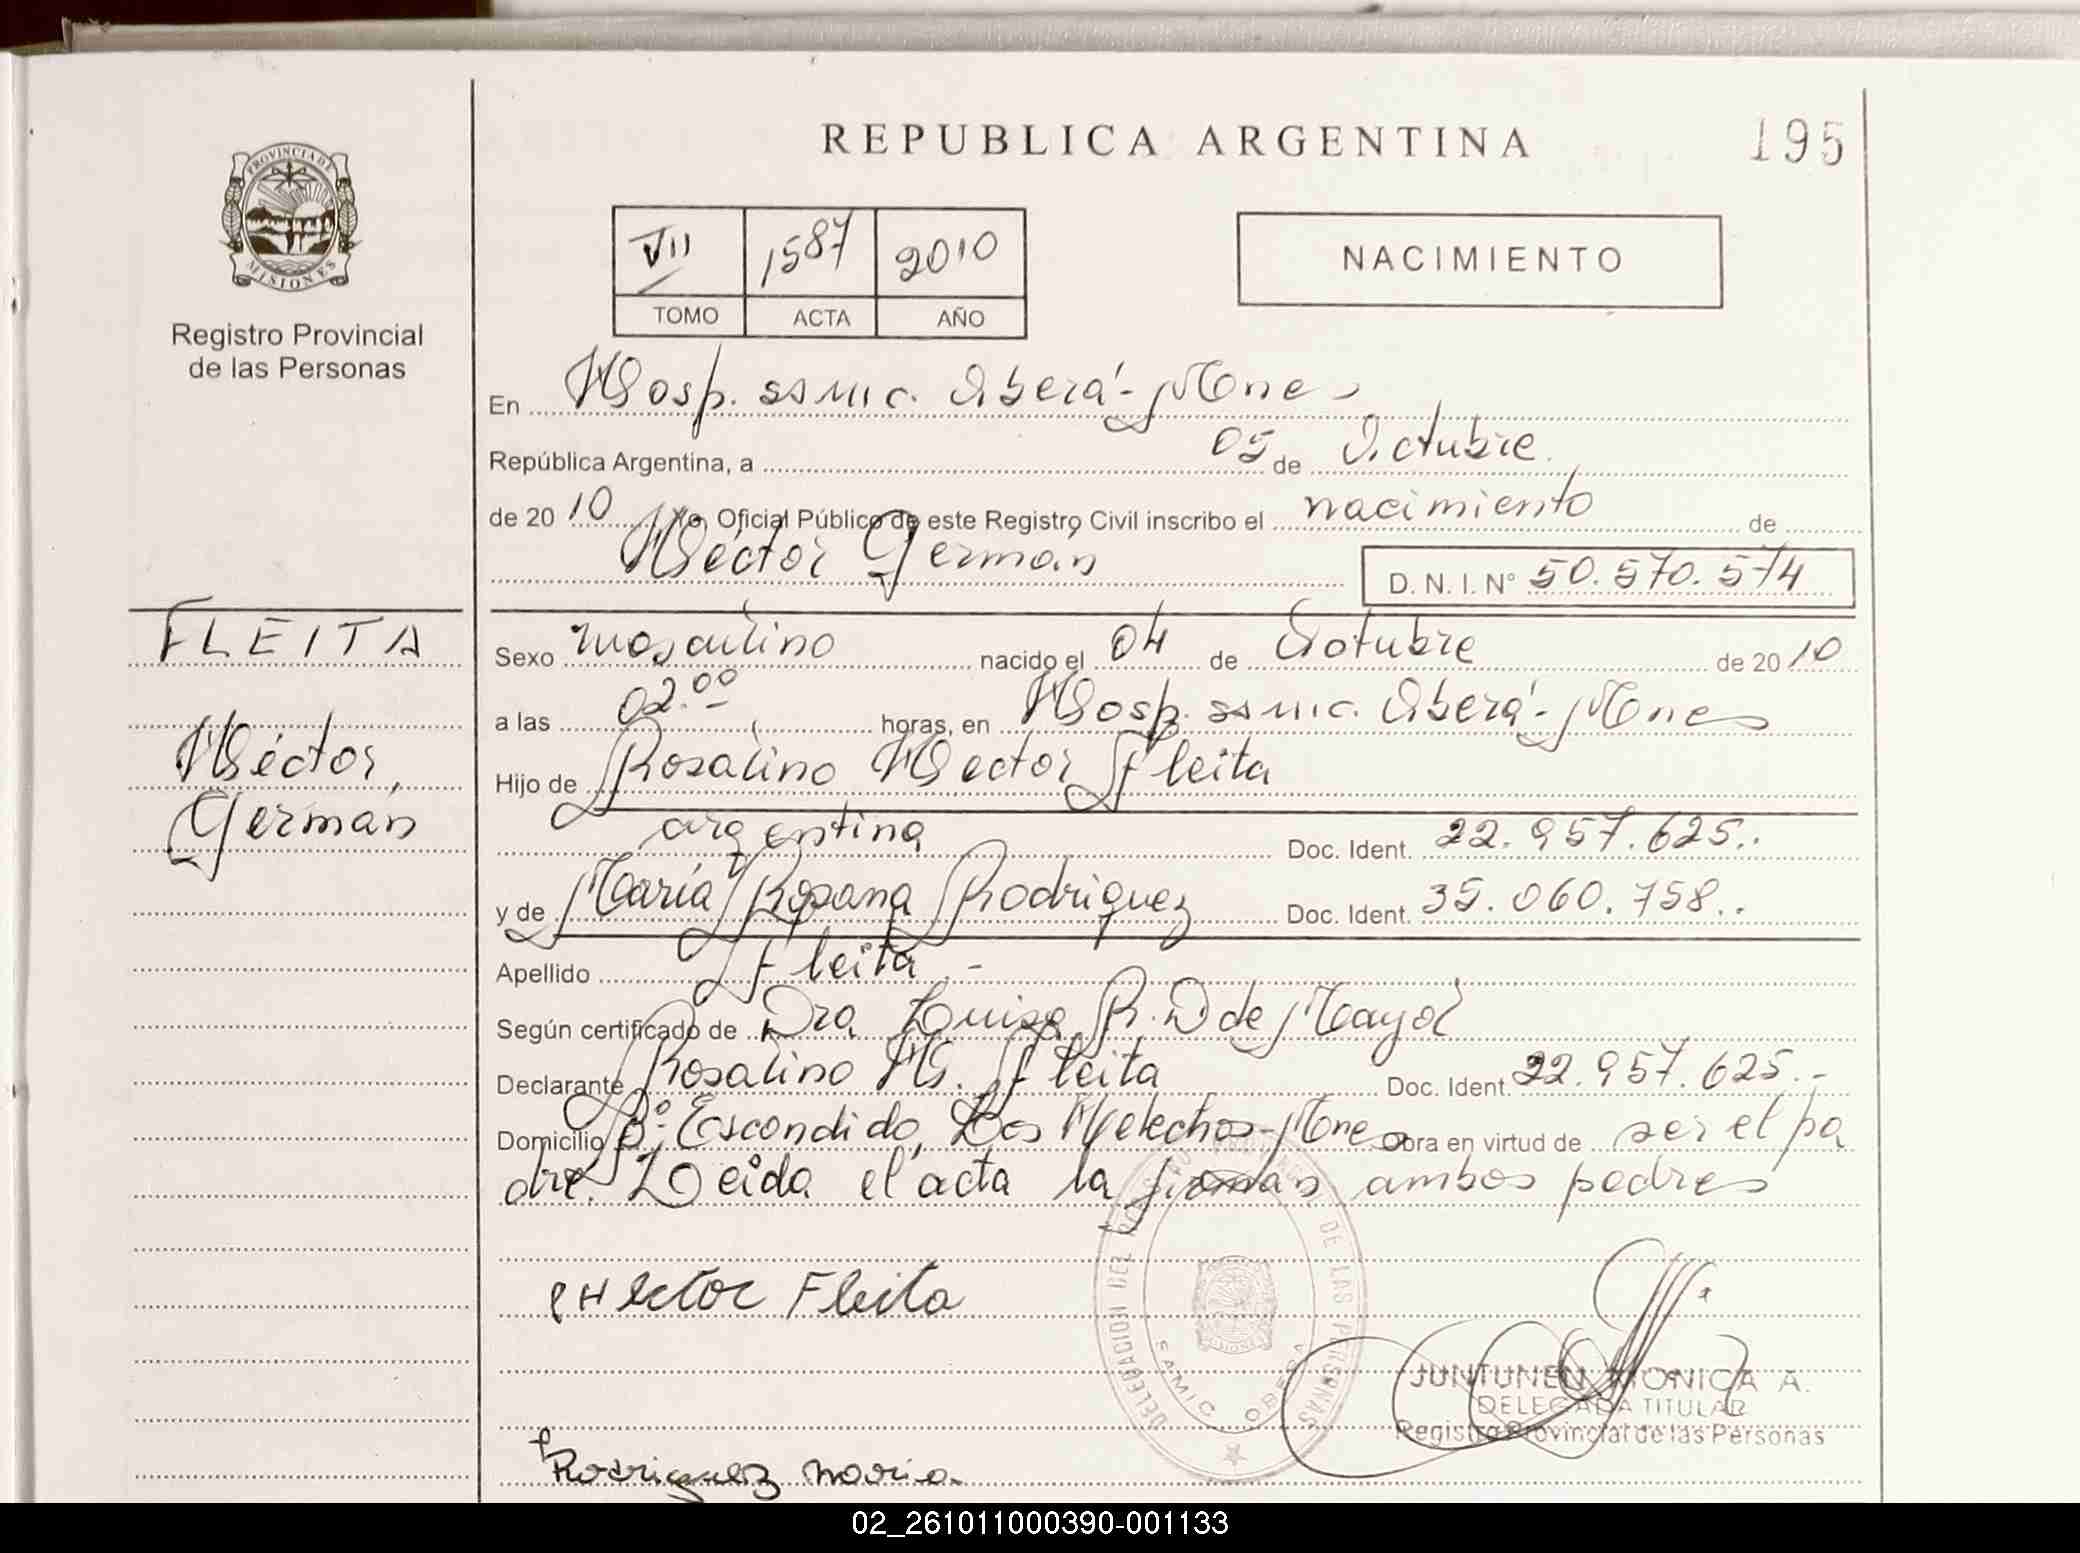 REPUBLICA ARGENTINA
195
PROVINCIA DE
MISIONES
Registro Provincial
de las Personas
VII 1587 2010
TOMO ACTA AÑO
NACIMIENTO
En Hosp. SAMIC. Oberá - Mnes
República Argentina, a 05 de Octubre
de 2010 Yo, Oficial Público de este Registro Civil inscribo el nacimiento de
Héctor Germán
D. N. I. N° 50.570.574
FLEITA
Héctor
Germán
Sexo masculino nacido el 04 de Octubre de 2010
a las 02.00 horas, en Hosp. SAMIC. Oberá - Mnes
Hijo de Rosalino Hector Fleita
argentina Doc. Ident. 22.957.625..
y de María Rosana Rodriguez Doc. Ident. 35.060.758..
Apellido Fleita.-
Según certificado de Dra Luisa R. D de Mayol
Declarante Rosalino H. Fleita Doc. Ident. 22.957.625.-
Domicilio B°: Escondido, Los Helechos - Mnes Obra en virtud de ser el pa
dre. Leida el acta la firman ambos padres
Hector Fleita
DELEGACION DEL REGISTRO PROVINCIAL DE LAS PERSONAS
SAMIC OBERA
JUNTUNEN MONICA A.
DELEGADA TITULAR
Registro Provincial de las Personas
Rodriguez maria.
02_261011000390-001133